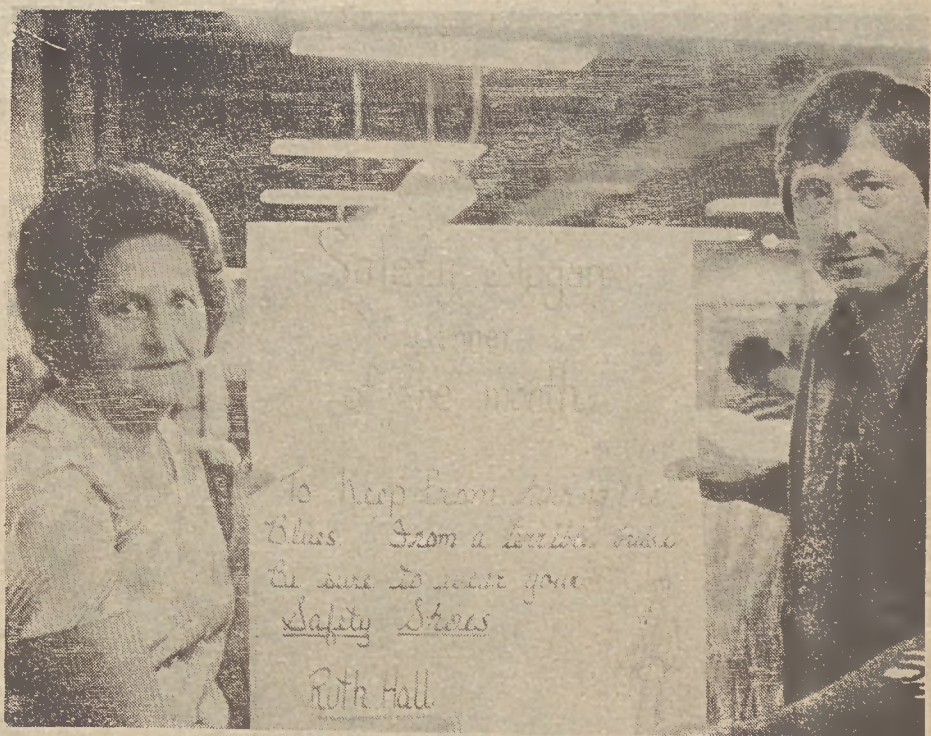 Safety Slogan
Winner
of the month
To Keep from having the
Blues From a terrible bruise
be sure to wear your
Safety Shoes
Ruth Hall